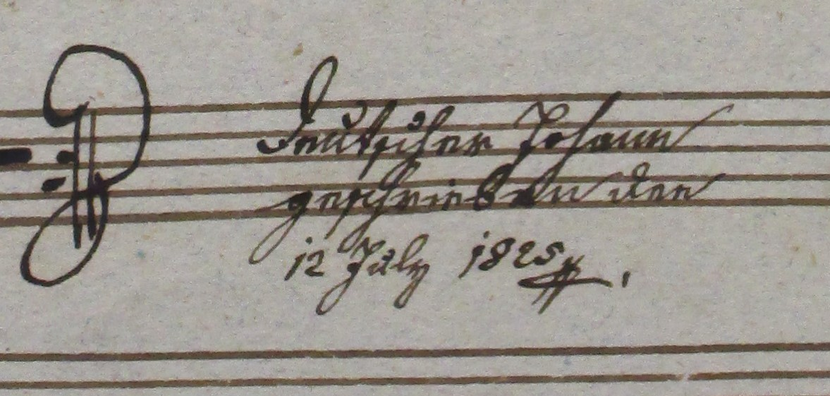 Deutscher Johann
geschrieben den
12 July 1825